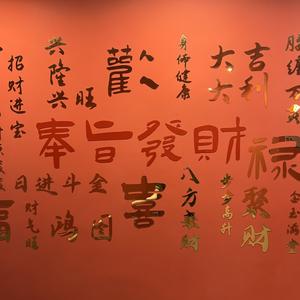 招财进宝
兴隆兴旺
人人
身体健康
大大
吉利
奉旨發財
禄
日进斗金
财气旺
鸿图
喜
八方聚财
步步高升
聚财
金玉满堂
福